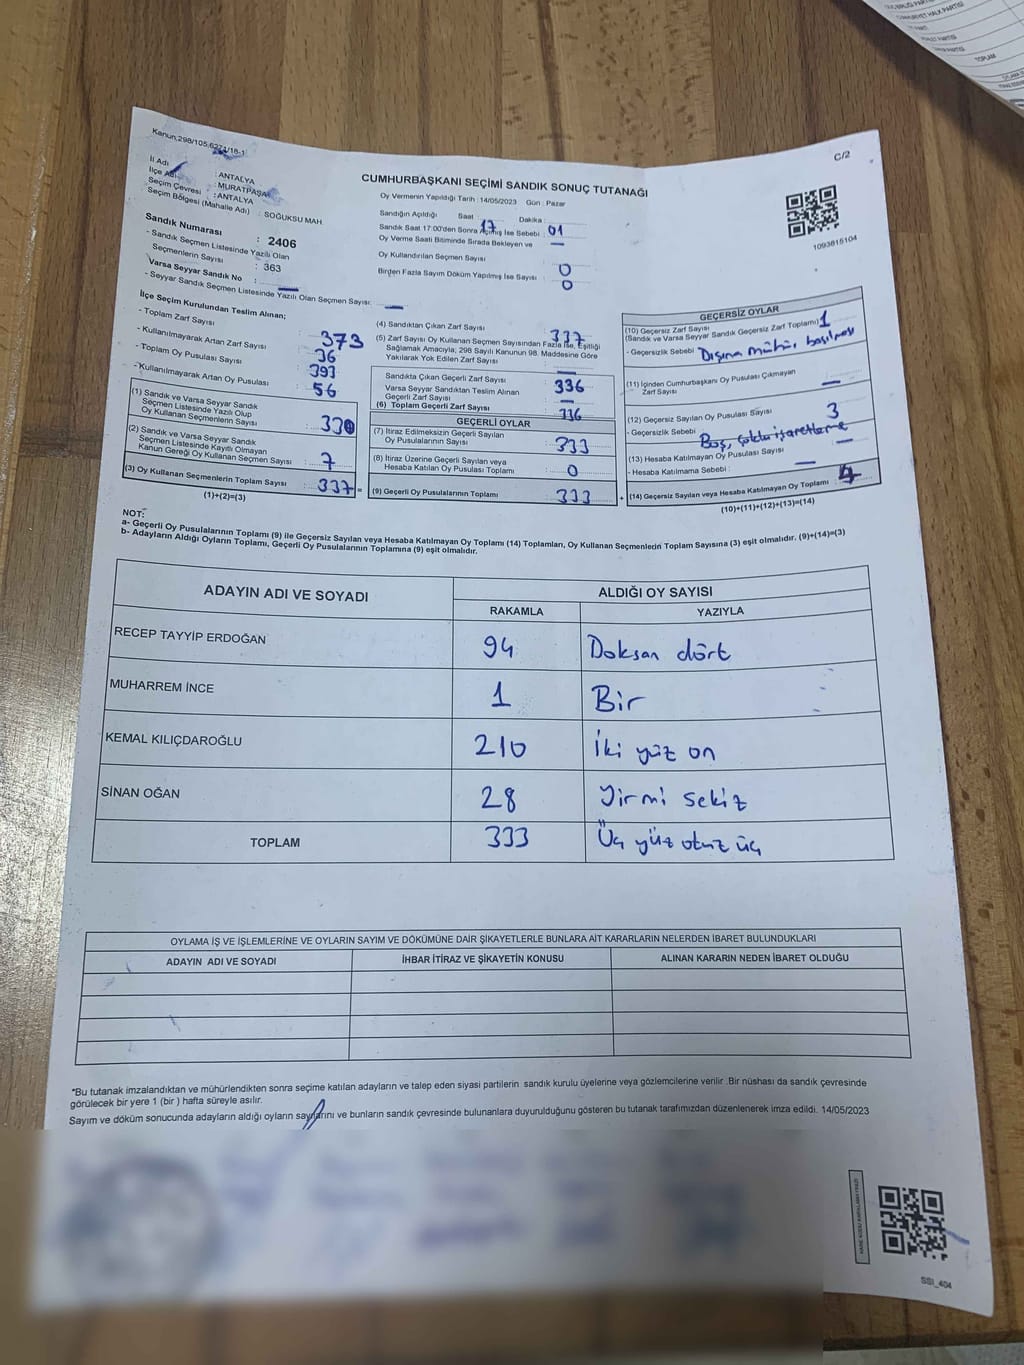 GÜÇ BİRLİĞİ PARTİ
CUMHURİYET HALK PARTİSİ
TOPLAM
Kanun,298/105,6271/18-1
C/2
İl Adı : ANTALYA
İlçe Adı : MURATPAŞA
Seçim Çevresi : ANTALYA
Seçim Bölgesi (Mahalle Adı) : SOĞUKSU MAH.
Sandık Numarası : 2406
- Sandık Seçmen Listesinde Yazılı Olan
Seçmenlerin Sayısı : 363
Varsa Seyyar Sandık No : —
- Seyyar Sandık Seçmen Listesinde Yazılı Olan Seçmen Sayısı: —
CUMHURBAŞKANI SEÇİMİ SANDIK SONUÇ TUTANAĞI
Oy Vermenin Yapıldığı Tarih : 14/05/2023 Gün : Pazar
Sandığın Açıldığı Saat : 17 Dakika : 01
Sandık Saat 17:00'den Sonra Açılmış İse Sebebi : —
Oy Verme Saati Bitiminde Sırada Bekleyen ve
Oy Kullandırılan Seçmen Sayısı : 0
Birden Fazla Sayım Döküm Yapılmış İse Sayısı : 0
1093815104
İlçe Seçim Kurulundan Teslim Alınan;
- Toplam Zarf Sayısı : 373
- Kullanılmayarak Artan Zarf Sayısı : 36
- Toplam Oy Pusulası Sayısı : 393
- Kullanılmayarak Artan Oy Pusulası : 56
(1) Sandık ve Varsa Seyyar Sandık
Seçmen Listesinde Yazılı Olup
Oy Kullanan Seçmenlerin Sayısı : 330
(2) Sandık ve Varsa Seyyar Sandık
Seçmen Listesinde Kayıtlı Olmayan
Kanun Gereği Oy Kullanan Seçmen Sayısı : 7
(3) Oy Kullanan Seçmenlerin Toplam Sayısı : 337 =
(1)+(2)=(3)
(4) Sandıktan Çıkan Zarf Sayısı : 337
(5) Zarf Sayısı Oy Kullanan Seçmen Sayısından Fazla İse, Eşitliği
Sağlamak Amacıyla; 298 Sayılı Kanunun 98. Maddesine Göre
Yakılarak Yok Edilen Zarf Sayısı : —
Sandıkta Çıkan Geçerli Zarf Sayısı : 336
Varsa Seyyar Sandıktan Teslim Alınan
Geçerli Zarf Sayısı : —
(6) Toplam Geçerli Zarf Sayısı : 336
GEÇERLİ OYLAR
(7) İtiraz Edilmeksizin Geçerli Sayılan
Oy Pusulalarının Sayısı : 333
(8) İtiraz Üzerine Geçerli Sayılan veya
Hesaba Katılan Oy Pusulası Toplamı : 0
(9) Geçerli Oy Pusulalarının Toplamı : 333 +
GEÇERSİZ OYLAR
(10) Geçersiz Zarf Sayısı
(Sandık ve Varsa Seyyar Sandık Geçersiz Zarf Toplamı) : 1
- Geçersizlik Sebebi : Dışına mühür basılması
(11) İçinden Cumhurbaşkanı Oy Pusulası Çıkmayan
Zarf Sayısı : —
(12) Geçersiz Sayılan Oy Pusulası Sayısı : 3
- Geçersizlik Sebebi : Boş, çoklu işaretleme
(13) Hesaba Katılmayan Oy Pusulası Sayısı : —
- Hesaba Katılmama Sebebi : —
(14) Geçersiz Sayılan veya Hesaba Katılmayan Oy Toplamı : 4
(10)+(11)+(12)+(13)=(14)
NOT:
a- Geçerli Oy Pusulalarının Toplamı (9) ile Geçersiz Sayılan veya Hesaba Katılmayan Oy Toplamı (14) Toplamları, Oy Kullanan Seçmenlerin Toplam Sayısına (3) eşit olmalıdır. (9)+(14)=(3)
b- Adayların Aldığı Oyların Toplamı, Geçerli Oy Pusulalarının Toplamına (9) eşit olmalıdır.
ADAYIN ADI VE SOYADI ALDIĞI OY SAYISI
RAKAMLA YAZIYLA
RECEP TAYYİP ERDOĞAN 94 Doksan dört
MUHARREM İNCE 1 Bir
KEMAL KILIÇDAROĞLU 210 İki yüz on
SİNAN OĞAN 28 Yirmi sekiz
TOPLAM 333 Üç yüz otuz üç
OYLAMA İŞ VE İŞLEMLERİNE VE OYLARIN SAYIM VE DÖKÜMÜNE DAİR ŞİKAYETLERLE BUNLARA AİT KARARLARIN NELERDEN İBARET BULUNDUKLARI
ADAYIN ADI VE SOYADI İHBAR İTİRAZ VE ŞİKAYETİN KONUSU ALINAN KARARIN NEDEN İBARET OLDUĞU
*Bu tutanak imzalandıktan ve mühürlendikten sonra seçime katılan adayların ve talep eden siyasi partilerin sandık kurulu üyelerine veya gözlemcilerine verilir .Bir nüshası da sandık çevresinde
görülecek bir yere 1 (bir ) hafta süreyle asılır.
Sayım ve döküm sonucunda adayların aldığı oyların sayılarını ve bunların sandık çevresinde bulunanlara duyurulduğunu gösteren bu tutanak tarafımızdan düzenlenerek imza edildi. 14/05/2023
SSI_404